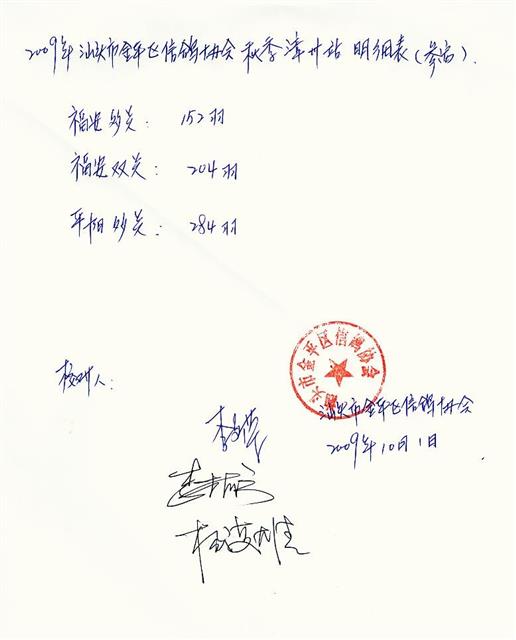 2009年汕头市金平区信鸽协会秋季漳州站明细表(参考).
福安外关: 152羽
福安双关: 204羽
平阳外关: 284羽
汕头市金平区信鸽协会
校对人:
汕头市金平区信鸽协会
2009年10月1日